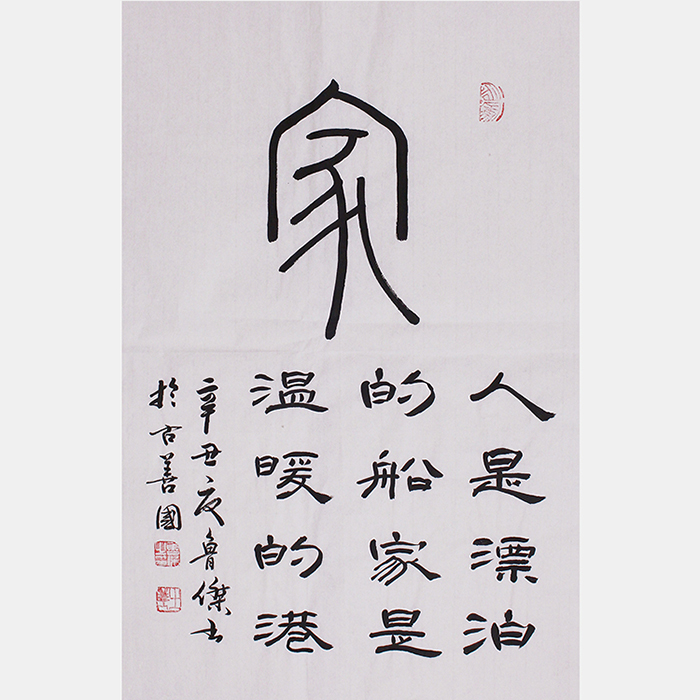 家
人是漂泊
的船家是
温暖的港
辛丑夜魯傑书
於古善國